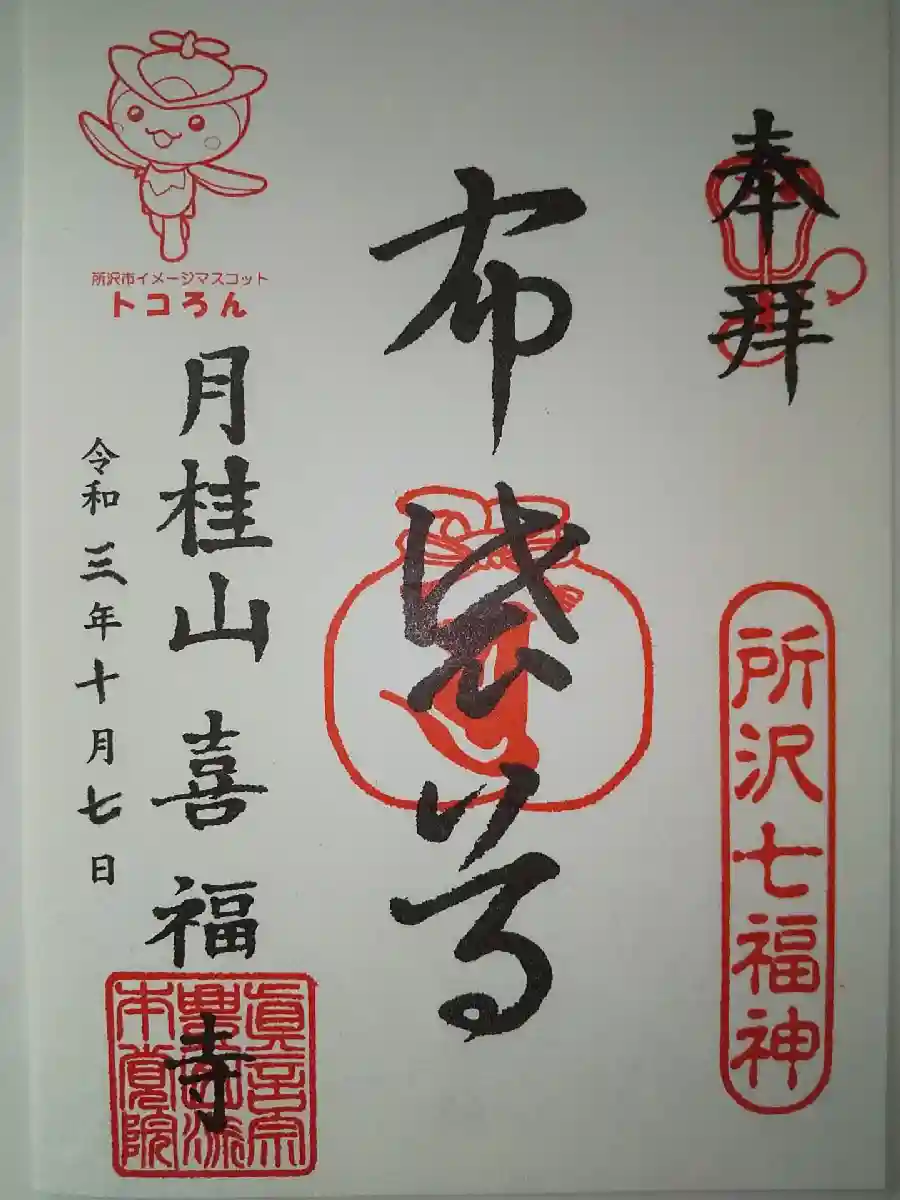 奉拝
所沢七福神
布袋尊
所沢市イメージマスコット
トコろん
月桂山 喜福寺
令和三年十月七日
眞言宗
豊山派
本覚院